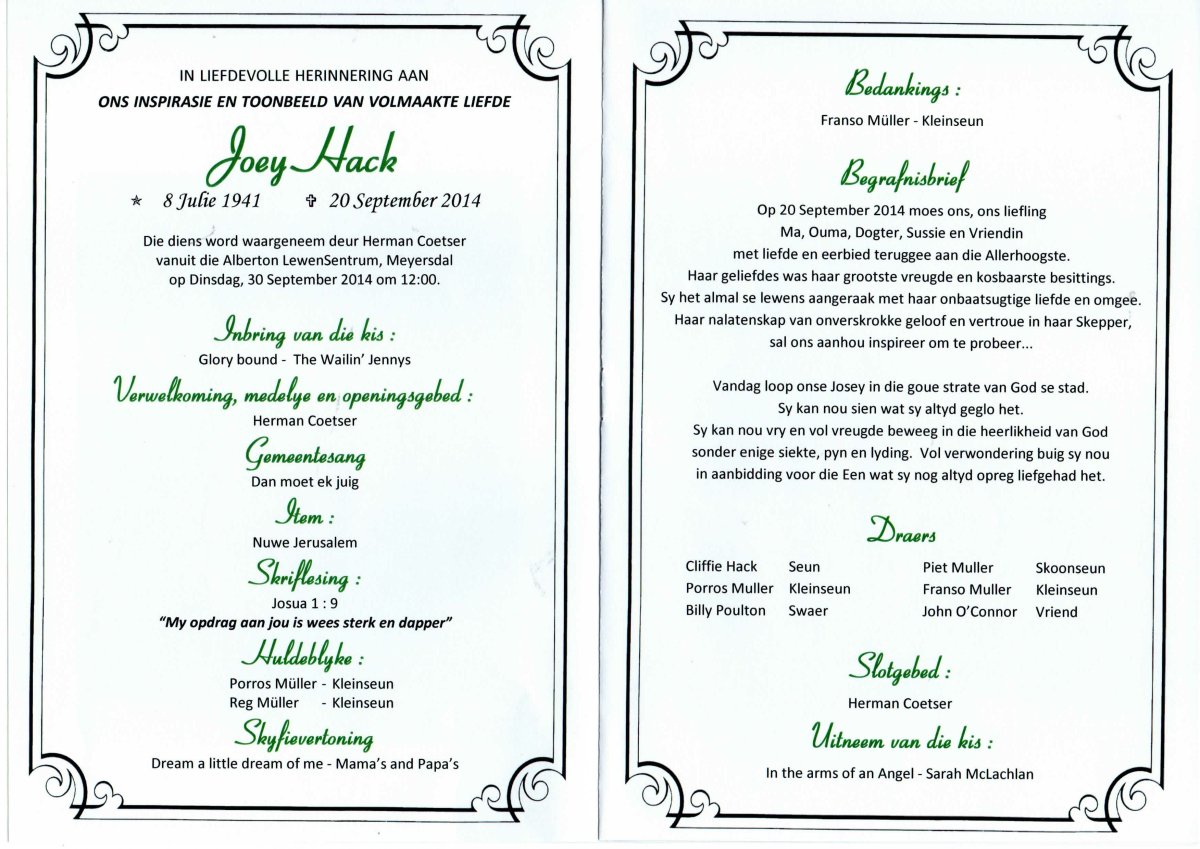 IN LIEFDEVOLLE HERINNERING AAN
ONS INSPIRASIE EN TOONBEELD VAN VOLMAAKTE LIEFDE
Joey Hack
✯ 8 Julie 1941 ✞ 20 September 2014
Die diens word waargeneem deur Herman Coetser
vanuit die Alberton LewenSentrum, Meyersdal
op Dinsdag, 30 September 2014 om 12:00.
Inbring van die kis :
Glory bound - The Wailin’ Jennys
Verwelkoming, medelye en openingsgebed :
Herman Coetser
Gemeentesang
Dan moet ek juig
Item :
Nuwe Jerusalem
Skriflesing :
Josua 1 : 9
“My opdrag aan jou is wees sterk en dapper”
Huldeblyke :
Porros Müller - Kleinseun
Reg Müller - Kleinseun
Skyfievertoning
Dream a little dream of me - Mama’s and Papa’s
Bedankings :
Franso Müller - Kleinseun
Begrafnisbrief
Op 20 September 2014 moes ons, ons liefling
Ma, Ouma, Dogter, Sussie en Vriendin
met liefde en eerbied teruggee aan die Allerhoogste.
Haar geliefdes was haar grootste vreugde en kosbaarste besittings.
Sy het almal se lewens aangeraak met haar onbaatsugtige liefde en omgee.
Haar nalatenskap van onverskrokke geloof en vertroue in haar Skepper,
sal ons aanhou inspireer om te probeer...
Vandag loop onse Josey in die goue strate van God se stad.
Sy kan nou sien wat sy altyd geglo het.
Sy kan nou vry en vol vreugde beweeg in die heerlikheid van God
sonder enige siekte, pyn en lyding. Vol verwondering buig sy nou
in aanbidding voor die Een wat sy nog altyd opreg liefgehad het.
Draers
Cliffie Hack Seun Piet Muller Skoonseun
Porros Muller Kleinseun Franso Muller Kleinseun
Billy Poulton Swaer John O’Connor Vriend
Slotgebed :
Herman Coetser
Uitneem van die kis :
In the arms of an Angel - Sarah McLachlan